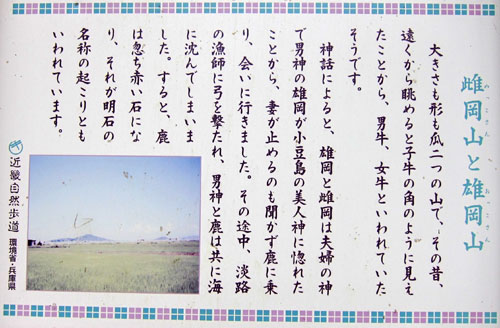 雌岡山と雄岡山
めっこさん おっこさん
大きさも形も瓜二つの山で、その昔、
遠くから眺めると子牛の角のように見え
たことから、男牛、女牛といわれていた
そうです。
神話によると、雄岡と雌岡は夫婦の神
で男神の雄岡が小豆島の美人神に惚れた
ことから、妻が止めるのも聞かず鹿に乗
り、会いに行きました。その途中、淡路
の漁師に弓を撃たれ、男神と鹿は共に海
に沈んでしまいま
した。すると、鹿
は忽ち赤い石にな
り、それが明石の
名称の起こりとも
いわれています。
近畿自然歩道
環境省・兵庫県